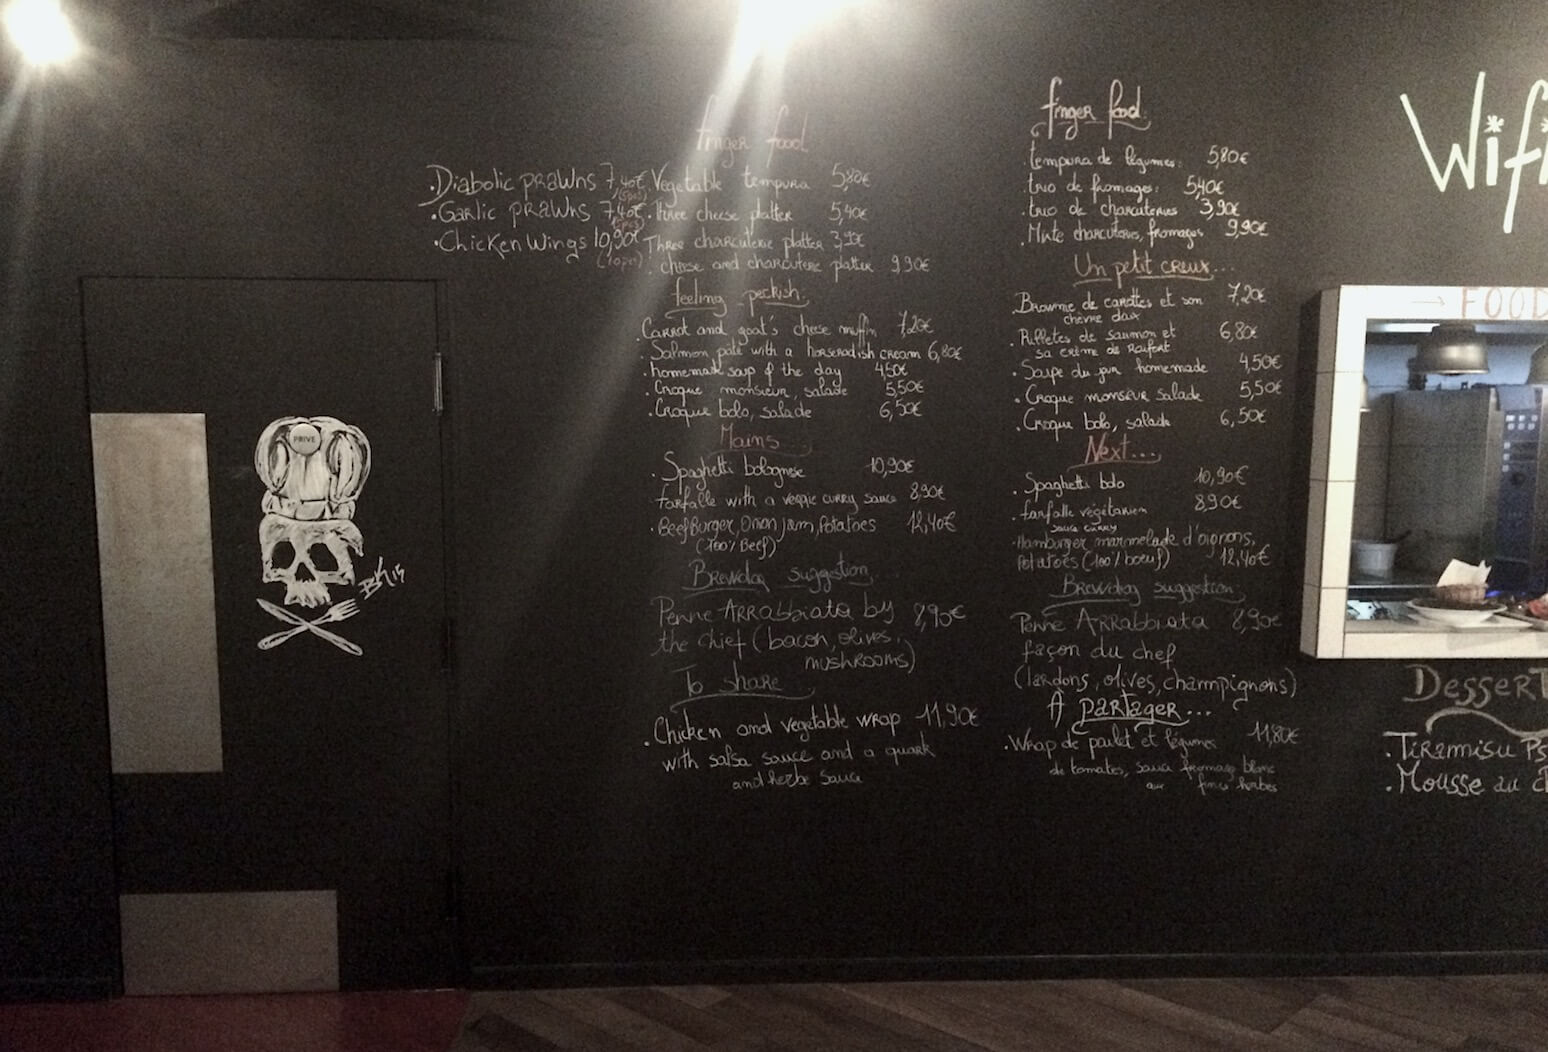 finger food
.Diabolic prawns 7,40€
.Garlic prawns 7,40€
.Chicken Wings 10,90€
Vegetable tempura 5,80€
.three cheese platter 5,40€
Three charcuterie platter
. cheese and charcuterie platter 9,90€
feeling peckish
.Carrot and goat's cheese muffin 7,20€
.Salmon paté with a horseradish cream 6,80€
.homemade soup of the day 4,50€
.Croque monsieur, salade 5,50€
.Croque bolo, salade 6,50€
Mains
. Spaghetti bolognese 10,90€
farfalle with a veggie curry sauce 8,90€
.Beefburger, Onion jam, Potatoes 12,40€
(100% Beef)
Brewdog suggestion
Penne Arrabbiata by 8,90€
the chief (bacon, olives,
mushrooms)
To share
.Chicken and vegetable wrap 11,90€
with salsa sauce and a quark
and herbs sauce
finger food
tempura de légumes: 5,80€
.trio de fromages: 5,40€
.trio de charcuteries 3,90€
.Mixte charcuteries, fromages 9,90€
Un petit creux...
Brownie de carottes et son 7,20€
chèvre doux
.Rillettes de saumon et 6,80€
sa crème de Raifort
.Soupe du jour homemade 4,50€
. Croque monsieur salade 5,50€
. Croque bolo, salade 6,50€
Next...
. Spaghetti bolo 10,90€
.farfalle végétarien 8,90€
sauce curry
Hamburger marmelade d'oignons,
Potatoes (100% boeuf) 12,40€
Brewdog suggestion
Penne Arrabbiata 8,90€
façon du chef
(lardons, olives, champignons)
A partager...
.Wrap de poulet et légumes 11,80€
de tomates, sauce fromage blanc
aux fines herbes
PRIVE
Wifi
→ FOOD
Dessert
.Tiramisu
.Mousse au